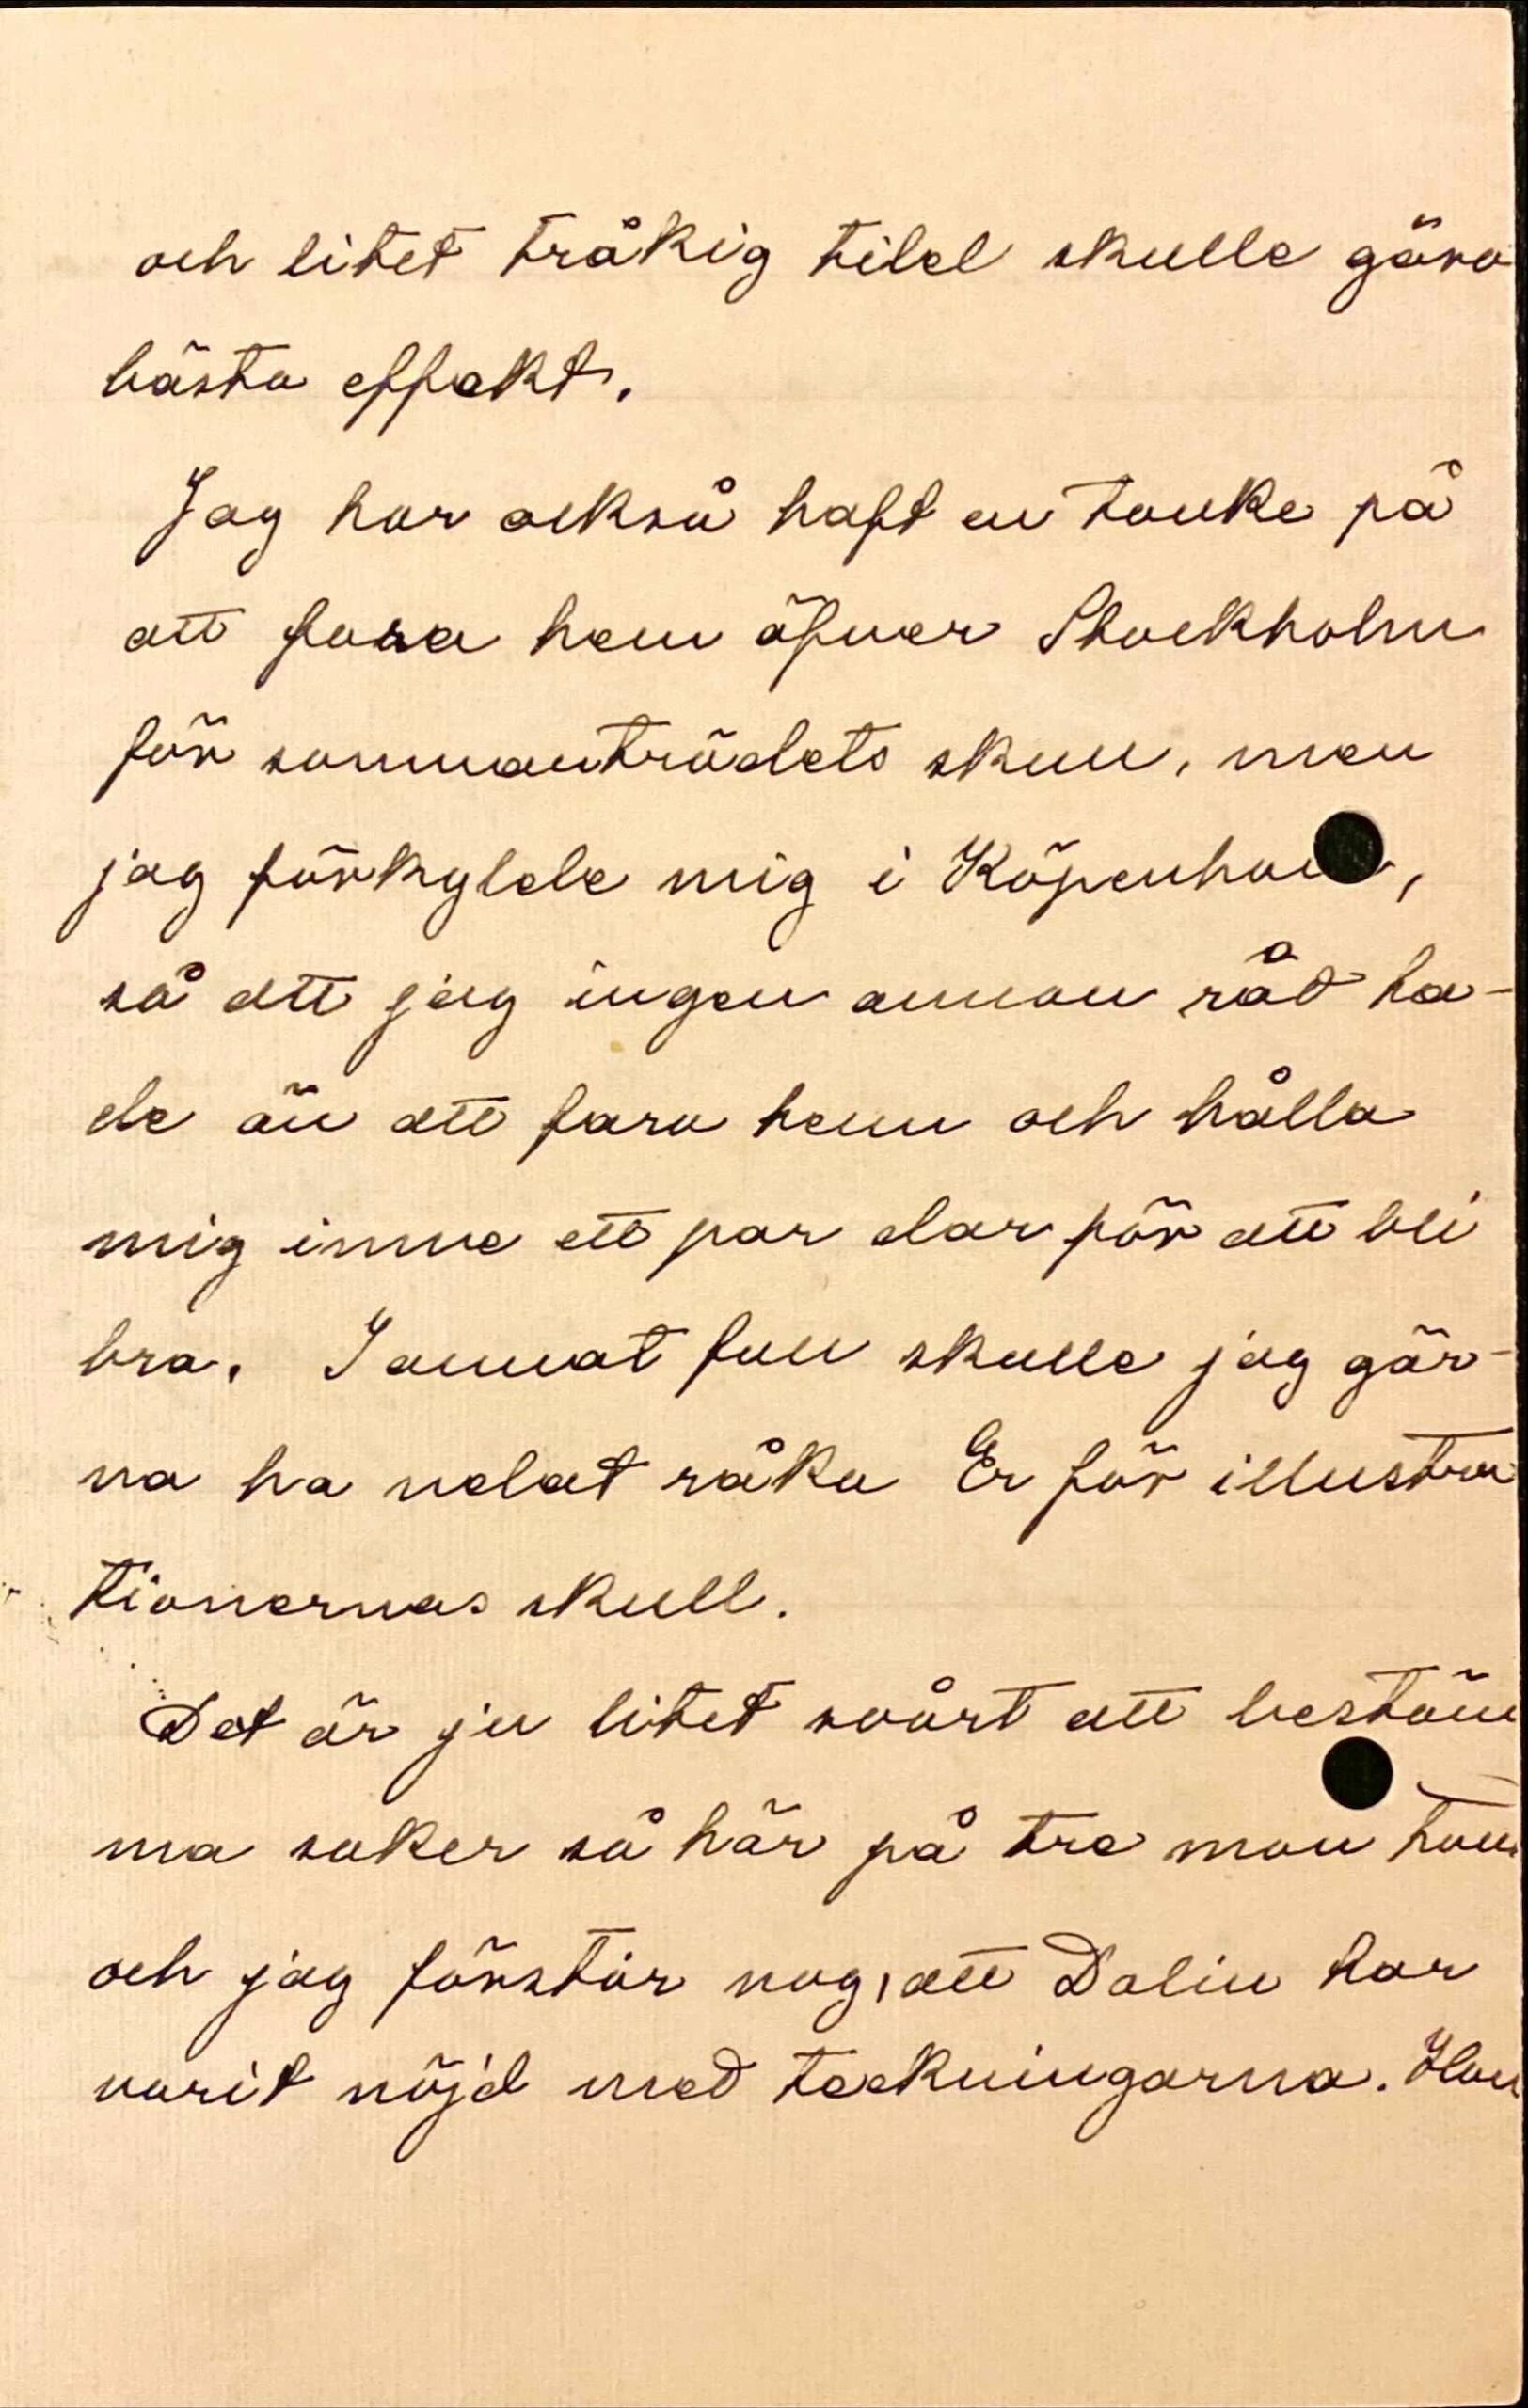 och litet tråkig titel skulle göra
bästa effekt.
Jag har också haft en tanke på
att fara hem öfver Stockholm
för sammanträdets skull, men
jag förkylde mig i Köpenhamn,
så att jag ingen annan råd ha-
de än att fara hem och hålla
mig inne ett par dar för att bli
bra. I annat fall skulle jag gär-
na ha velat råka Er för illustra
tionernas skull.
Det är ju litet svårt att bestäm
ma saker så här på tre man hand
och jag förstår nog, att Dalin har
varit nöjd med teckningarna. Han